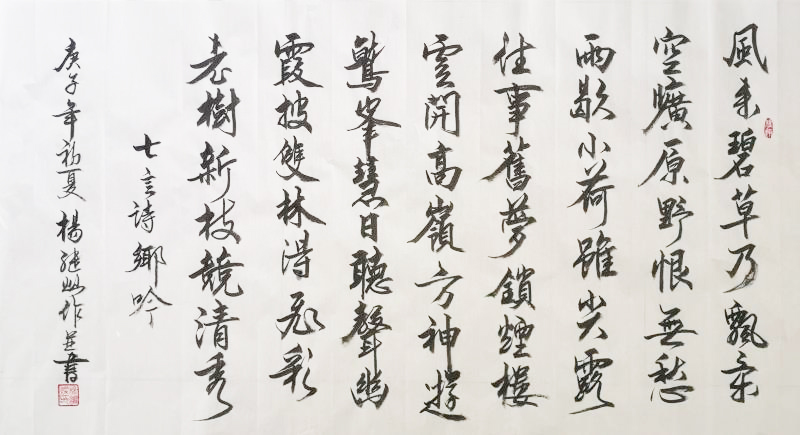 風来碧草乃飄柔
空曠原野恨無愁
雨歇小荷雖尖露
往事舊夢鎖煙樓
雲開高嶺方神遊
鷲峯慧日聽聲幽
霞披雙林得彩
老樹新枝競清秀
七言詩鄉吟
庚子年初夏楊繼作並書